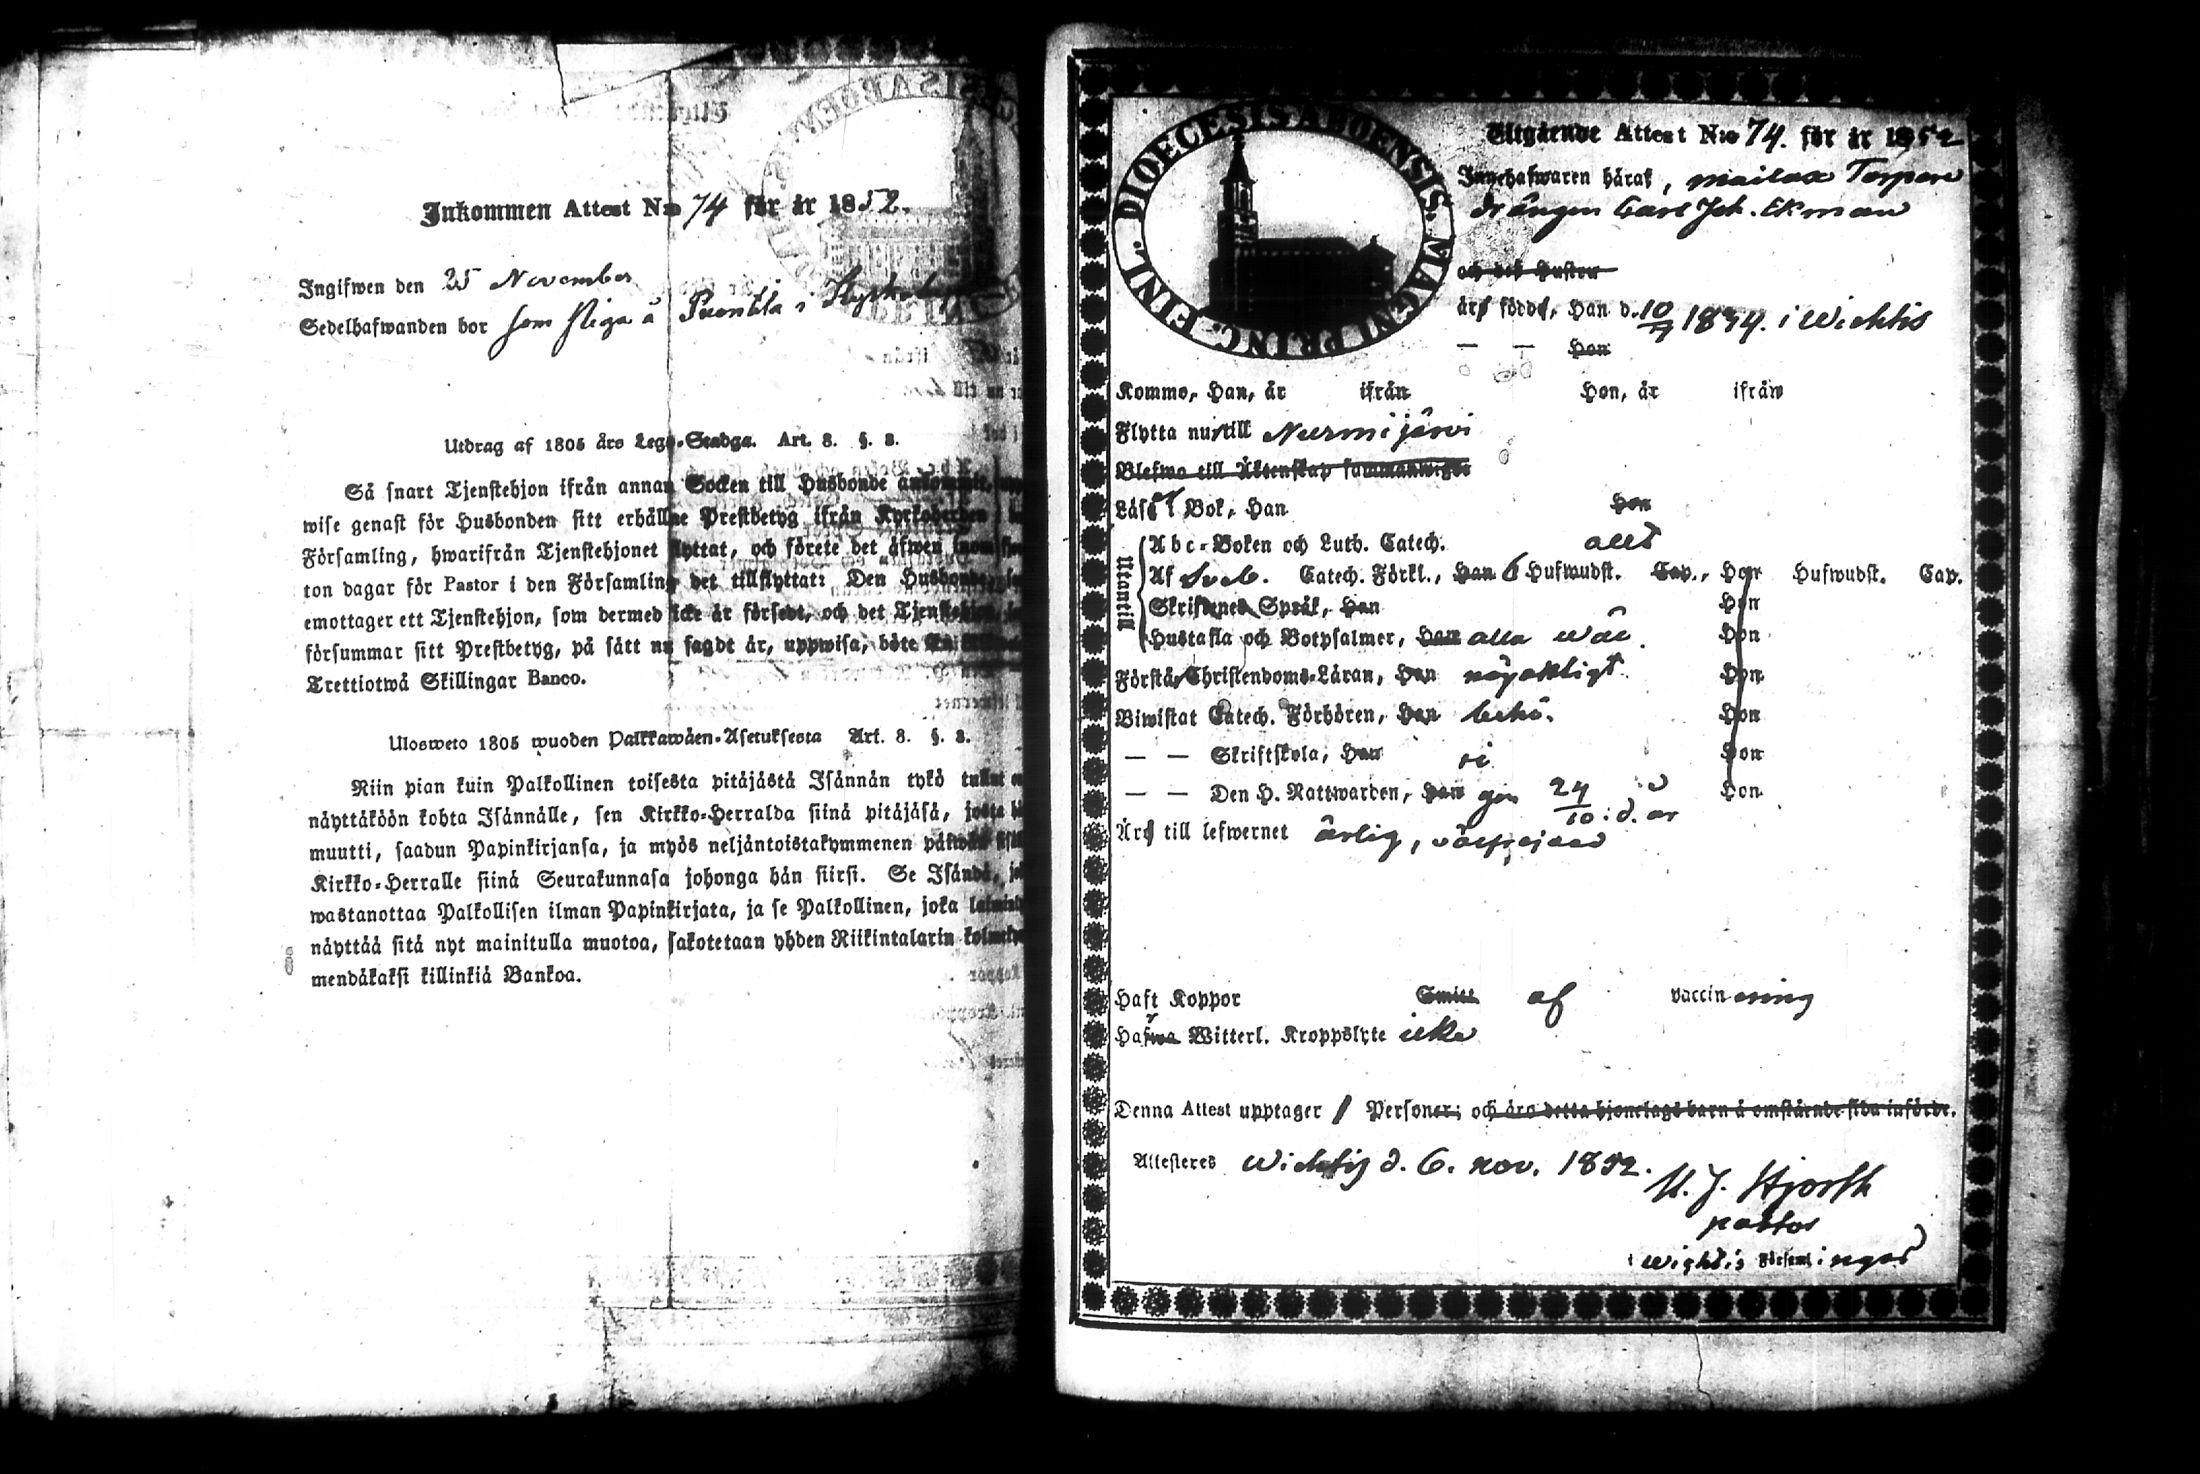 Inkommen Attest N:o 74 för år 1852.
Ingifwen den 25 November
Sedelhafwanden bor som piga å i
Utdrag af 1805 års Lego-Stadga. Art. 8. §. 8.
Så snart Tjenstehjon ifrån annan Socken till Husbonde ankommit,
wise genast för Husbonden sitt erhållne Prestbetyg ifrån Kyrkoherden i
Församling, hwarifrån Tjenstehjonet flyttat, och förete det äfwen inom
ton dagar för Pastor i den Församling det tillflyttat: Den Husbonde,
emottager ett Tjenstehjon, som dermed icke är försedt, och det Tjenstehjon,
försummar sitt Prestbetyg, på sätt nu sagdt är, uppwisa, böte
Trettiotwå Skillingar Banco.
Ulosweto 1805 wuoden Palkkawäen-Asetuksesta Art. 8. §. 8.
Niin pian kuin Palkollinen toisesta pitäjästä Isännän tykö tullut
näyttäköön kohta Isännälle, sen Kirkko-Herralda siinä pitäjäsä, josta
muutti, saadun Papinkirjansa, ja myös neljäntoistakymmenen päiwän
Kirkko-Herralle siinä Seurakunnasa johonga hän siirsi. Se Isändä,
wastanottaa Palkollisen ilman Papinkirjata, ja se Palkollinen, joka
näyttää sitä nyt mainitulla muotoa, sakotetaan yhden Riikintalarin kolmeky
mendäkaksi killinkiä Bankoa.
DIOECESIS ABOENSIS. MAGNI PRINC. FINL.
Utgående Attest N:o 74. för år 1852
Innehafwaren häraf, Torpare
drängen Carl Joh. Ekman
och des Hustru
äro födde, Han d. 10/7 18 4. i Wichtis
— — Hon
Kommo, Han, år ifrån Hon, år ifrån
Flytta nu till Nurmijärvi
Blefwo till Äktenskap sammanwigde
Läsa i Bok, Han Hon
Utantill
Abc-Boken och Luth. Catech. allt
Af Sveb. Catech. Förkl., Han 6 Hufwudst. Cap., Hon Hufwudst. Cap.
Skriftenes Språk, Han Hon
Hustafla och Botpsalmer, Han alla wäl Hon
Förstå Christendoms-Läran, Han nöjaktligt Hon
Biwistat Catech. Förhören, Han behö. Hon
— — Skriftskola, Han Hon
— — Den H. Nattwarden, Han 24/10 i. d. år Hon
Äro till lefwernet ärlig,
Haft Koppor Smitt af vaccinering
Hafwa Witterl. Kroppslyte icke
Denna Attest upptager 1 Personer; och äro detta hjonelags barn å omstående sida införde.
Attesteres Wichtis d. 6. nov. 1852.
Hjorth
pastor
i Wichtis Församlingar